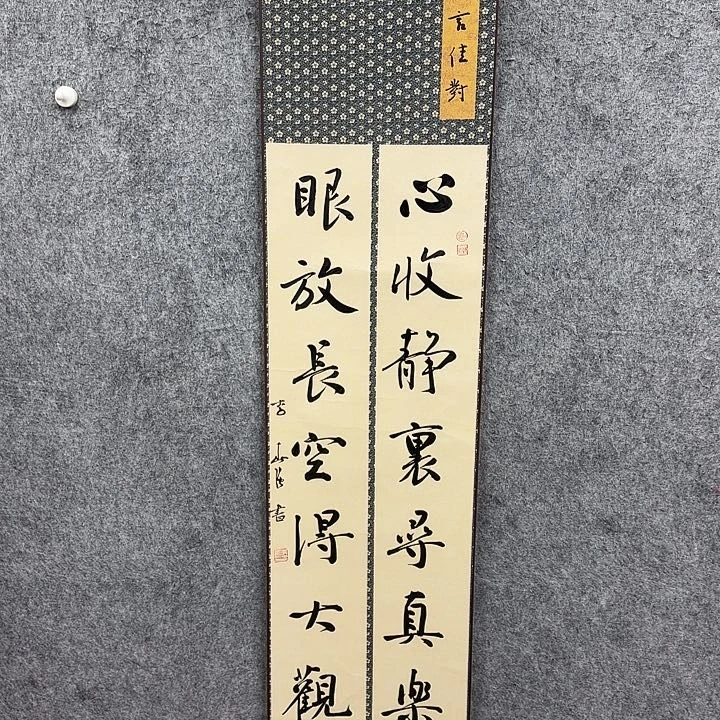 言佳對
心收静裏尋真樂
眼放長空得大觀